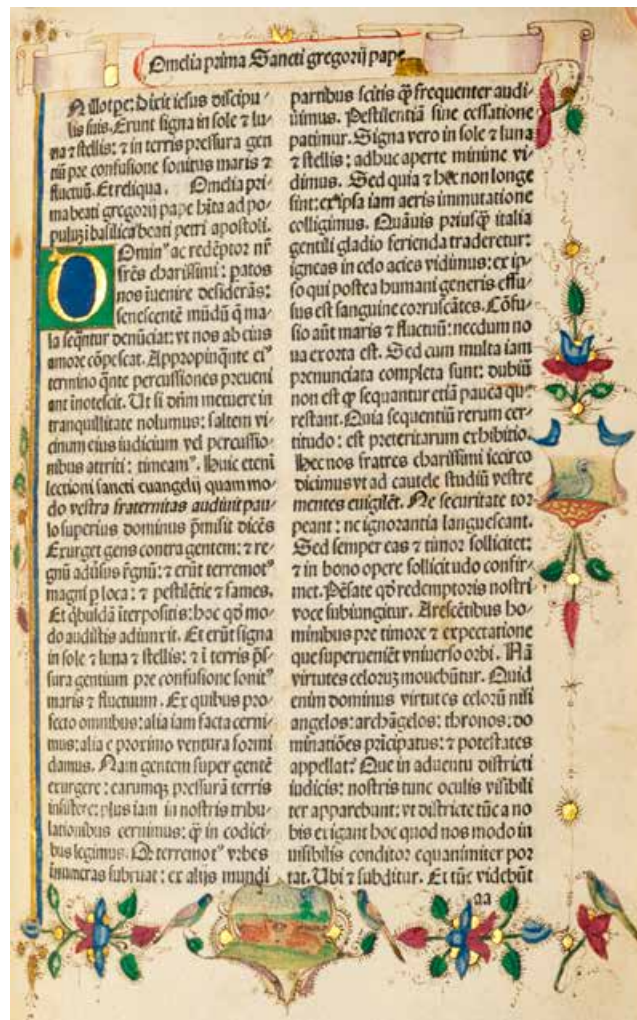 Omelia prima Sancti gregorij pape
N illo tpe: dicit iesus discipu-
lis suis. Erunt signa in sole ⁊ lu-
na ⁊ stellis: ⁊ in terris pressura gen
tiũ pre confusione sonitus maris ⁊
fluctuũ. Et reliqua. Omelia pri-
ma beati gregorij pape hĩta ad po-
pulũ ĩ basilica beati petri apostoli.
Omin⁹ ac redẽptor nr̃
frẽs charissimi: patos
nos ĩuenire desiderãs:
senescentẽ mũdũ q̃ ma-
la seqñtur denũciat: vt nos ab eius
amore cõpescat. Appropinq̃nte ei⁹
termino q̃nte percussiones preueni
ant ĩnotescit. Ut si dñm metuere in
tranquillitate nolumus: saltem vi-
cinum eius iudicium vel percussio-
nibus attriti: timeam⁹. Huic etenĩ
lectioni sancti euangelij quam mo-
do vestra fraternitas audiuit pau-
lo superius dominus p̃misit dicẽs
Exurget gens contra gentem: ⁊ re-
gnũ aduersus r̃gnũ: ⁊ erũt terremot⁹
magni p loca: ⁊ pestilẽtie ⁊ fames.
Et q̃busdã ĩterpositis: hoc qđ mo-
do audistis adiunxit. Et erũt signa
in sole ⁊ luna ⁊ stellis: ⁊ ĩ terris p̃s-
sura gentium pre confusione sonit⁹
maris ⁊ fluctuum. Ex quibus pro-
fecto omnibus: alia iam facta cerni-
mus: alia e proximo ventura formi
damus. Nam gentem super gentẽ
exurgere: earumqꝫ pressurã terris
insistere: plus iam in nostris tribu-
lationibus cernimus: q̃ in codici-
bus legimus. Qđ terremot⁹ vrbes
ĩnumeras subruat: ex alijs mundi
partibus scitis q̃ frequenter audi-
uimus. Pestilentiã sine cessatione
patimur. Signa vero in sole ⁊ luna
⁊ stellis: adhuc aperte minime vi-
dimus. Sed quia ⁊ hec non longe
sint: ex ipsa iam aeris immutatione
colligimus. Quãuis priusq̃ italia
gentili gladio ferienda traderetur:
igneas in celo acies vidimus: ex ip-
so qui postea humani generis effu-
sus est sanguine corruscãtes. Cõfu-
sio aũt maris ⁊ fluctuũ: necdum no
ua exorta est. Sed cum multa iam
prenunciata completa sunt: dubiũ
non est q̃ sequantur etiã pauca qu
restant. Quia sequentiũ rerum cer-
titudo: est preteritarum exhibitio.
Hec nos fratres charissimi iccirco
dicimus vt ad cautele studiũ vestre
mentes euigilẽt. Ne securitate tor
peant: ne ignorantia languescant.
Sed semper eas ⁊ timor sollicitet:
⁊ in bono opere sollicitudo confir-
met. Pẽsate qđ redemptoris nostri
voce subiungitur. Arescẽtibus ho-
minibus pre timore ⁊ expectatione
que superueniẽt vniuerso orbi. Nã
virtutes celoruꝫ mouebũtur. Quid
enim dominus virtutes celorũ nisi
angelos: archãgelos: thronos: do
minatiões prĩcipatus: ⁊ potestates
appellat? Que in aduentu districti
iudicis: nostris tunc oculis visibili
ter apparebunt: vt districte tũc a no
bis exigant hoc quod nos modo in
uisibilis conditor equanimiter por
tat. Ubi ⁊ subditur. Et tũc videbũt
aa